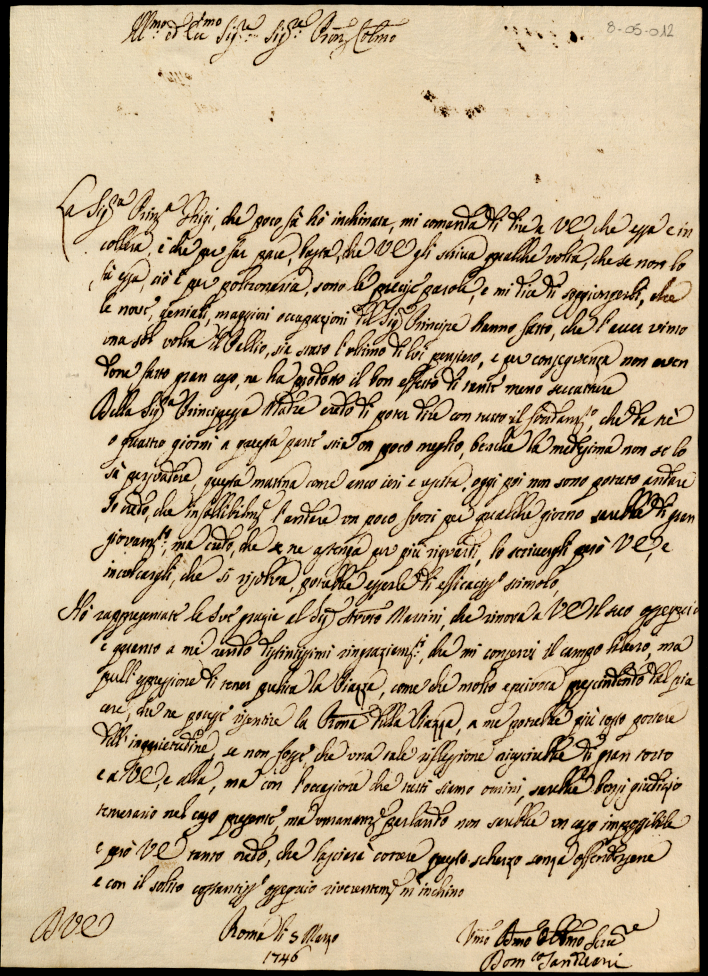 8-05-012
Ill.mo ed Ecc.mo Sig.re Sig.re Pron. Colmo
La Sig.ra Prinp.a Ghigi, che poco fà hò inchinata, mi comanda di dire a VE che essa è in
collera, e che per far pace, basta, che VE gli scriva qualche volta, che se non lo
fà essa ciò è per poltronaria, sono le precise parole, e mi dice di soggiungerli, che
le nove, geniali, maggiori occupazioni del Sig. Principe hanno fatto, che l'aver vinto
una sol volta il Pallio, sia stato l'ultimo di lui pensiero, e per conseguenza non aven
done fatto gran caso, ne ha prodotto il bon effetto di tante meno seccature
Della Sig.ra Principessa Madre credo di poter dire con tutto il fondam.to, che da trè
o quattro giorni a questa parte stia un poco meglio, benche la medesima non se lo
sà persuadere, questa mattina come anco ieri è uscita, oggi poi non sono potuto andare
Io credo, che infallibilm.e l'andare un poco fuori per qualche giorno sarebbe di gran
giovam.to, ma credo, che se ne astenga per più riguardi, lo scrivergli però VE, e
inculcargli, che si risolva, potrebbe esserle di efficaciss.o stimolo,
Hò rappresentate le sue grazie al Sig. Marini, che rinova a VE il suo ossequio
e quanto a me rendo distintissimi ringraziam.ti, che mi conservi il campo libero, ma
sull'espressione di tener pulita la Piazza, come che molto equivoca prescindendo dal pia
cere, che ne potesse risentire la Piazza, a me potrebbe più tosto portare
dell'inquietudine, se non fosse, che una tale riflessione riuscirebbe di gran torto
e a VE, e alla, ma con l'occasione che tutti siamo omini, sarebbe bensì giudizio
temerario nel caso presente, ma umanam.e parlando non sarebbe un caso impossibile
e però VE tanto credo, che lascierà correre questo scherzo senza offendersene
e con il solito costantiss.o ossequio riverentem.e m'inchino
D VE
Roma li 5 Marzo
1746
Um.o Dmo Obbmo Ser.re
Dom.co Santreani